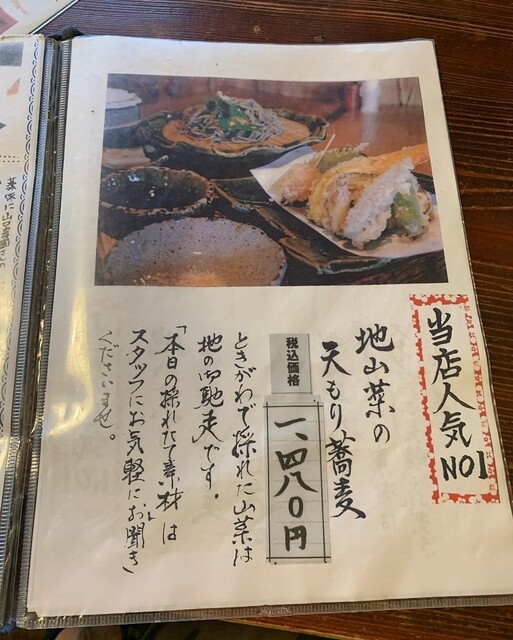 当店人気NO1
地山菜の
天もり蕎麦
税込価格
一、四八〇円
ときがわで採れた山菜は
地の御馳走です。
「本日の採れたて素材」は
スタッフにお気軽にお聞き
くださいませ。